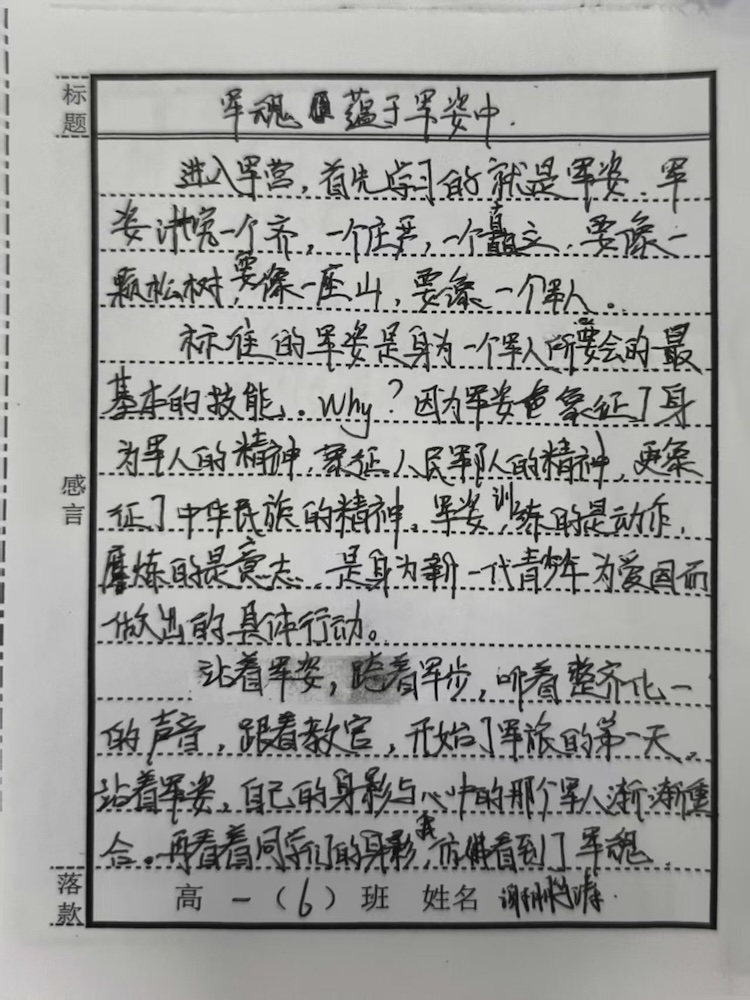 标题
军魂蕴于军姿中.
进入军营，首先学习的就是军姿.军
姿讲究一个齐，一个庄严，一个直立.要像一
颗松树，要像一座山，要像一个军人。
标准的军姿是身为一个军人所要会的最
基本的技能。Why？因为军姿象征了身
为军人的精神，象征人民军队人的精神，更象
征了中华民族的精神。军姿训练的是动作，
磨炼的是意志.是身为新一代青少年为爱国而
做出的具体行动。
感言
站着军姿，踏着军步，听着整齐化一
的声音，跟着教官，开始了军旅的第一天。
站着军姿，自己的身影与心中的那个军人渐渐重
合。再看着同学们的身影，我仿佛看到了军魂.
落款
高一（6）班 姓名